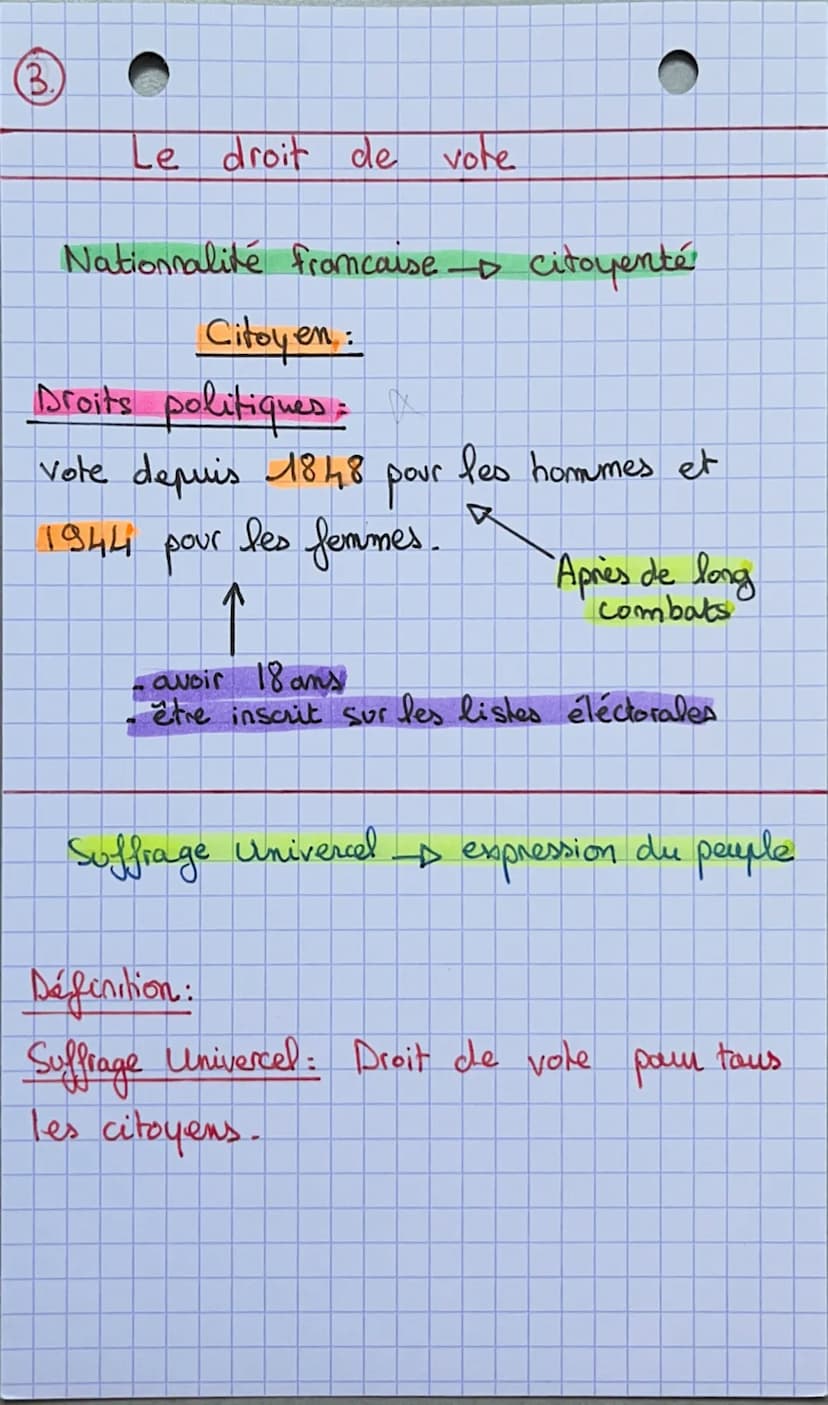 3.
Le droit de vote
Nationnalité francaise → citoyenté
Citoyen :
Droits politiques :
vote depuis 1848 pour les hommes et
1944 pour les femmes.
Après de long
combats
- avoir 18 ans
- être inscrit sur les listes éléctorales
Suffrage Univercel → expression du peuple
Définition :
Suffrage Univercel : Droit de vote pour tous
les citoyens.